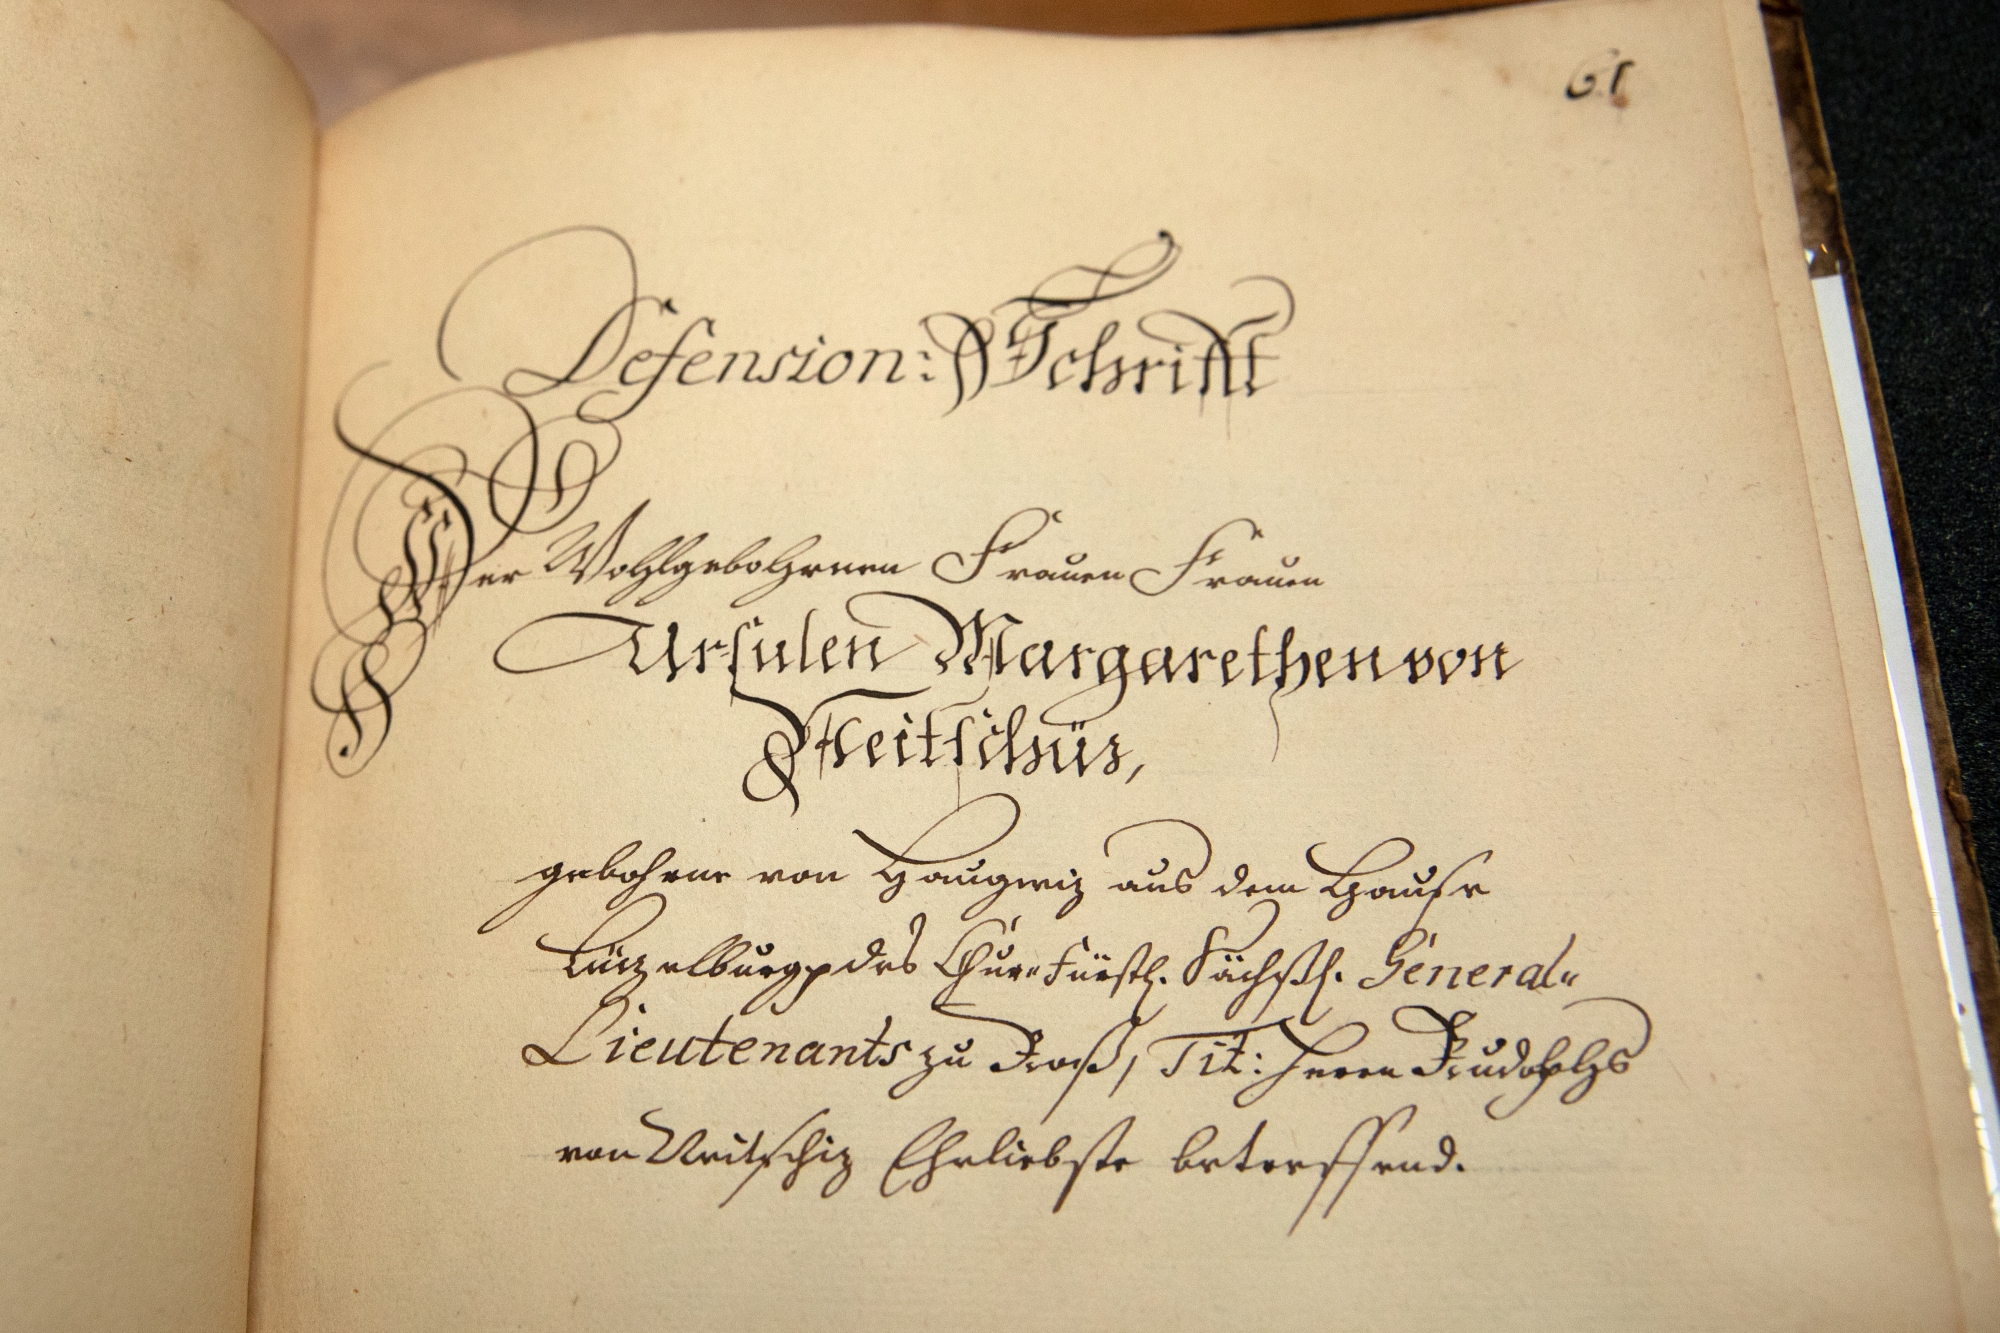 61
Defension: Schrifft
Der Wohlgebohrnen Frauen Frauen
Ursulen Margarethen von
Neitschüz,
gebohrne von Haugwiz aus dem Hause
des Chur-Fürstl. Sächßl. General-
Lieutenants zu Roß, Tit: Herrn Rudolphs
von Neitschiz Eheliebste betreffend.